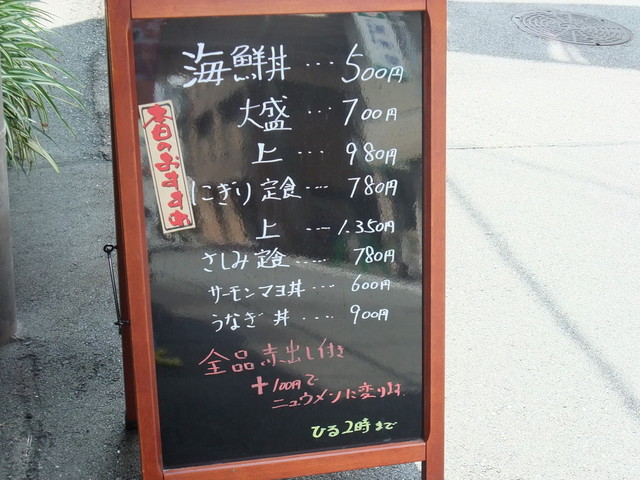 海鮮丼 … 500円
大盛 … 700円
上 … 980円
本日のおすすめ
にぎり定食 … 780円
上 … 1.350円
さしみ定食 …… 780円
サーモンマヨ丼 … 600円
うなぎ丼 … 900円
全品赤出し付き
+100円で
ニュウメンに変ります.
ひる2時まで